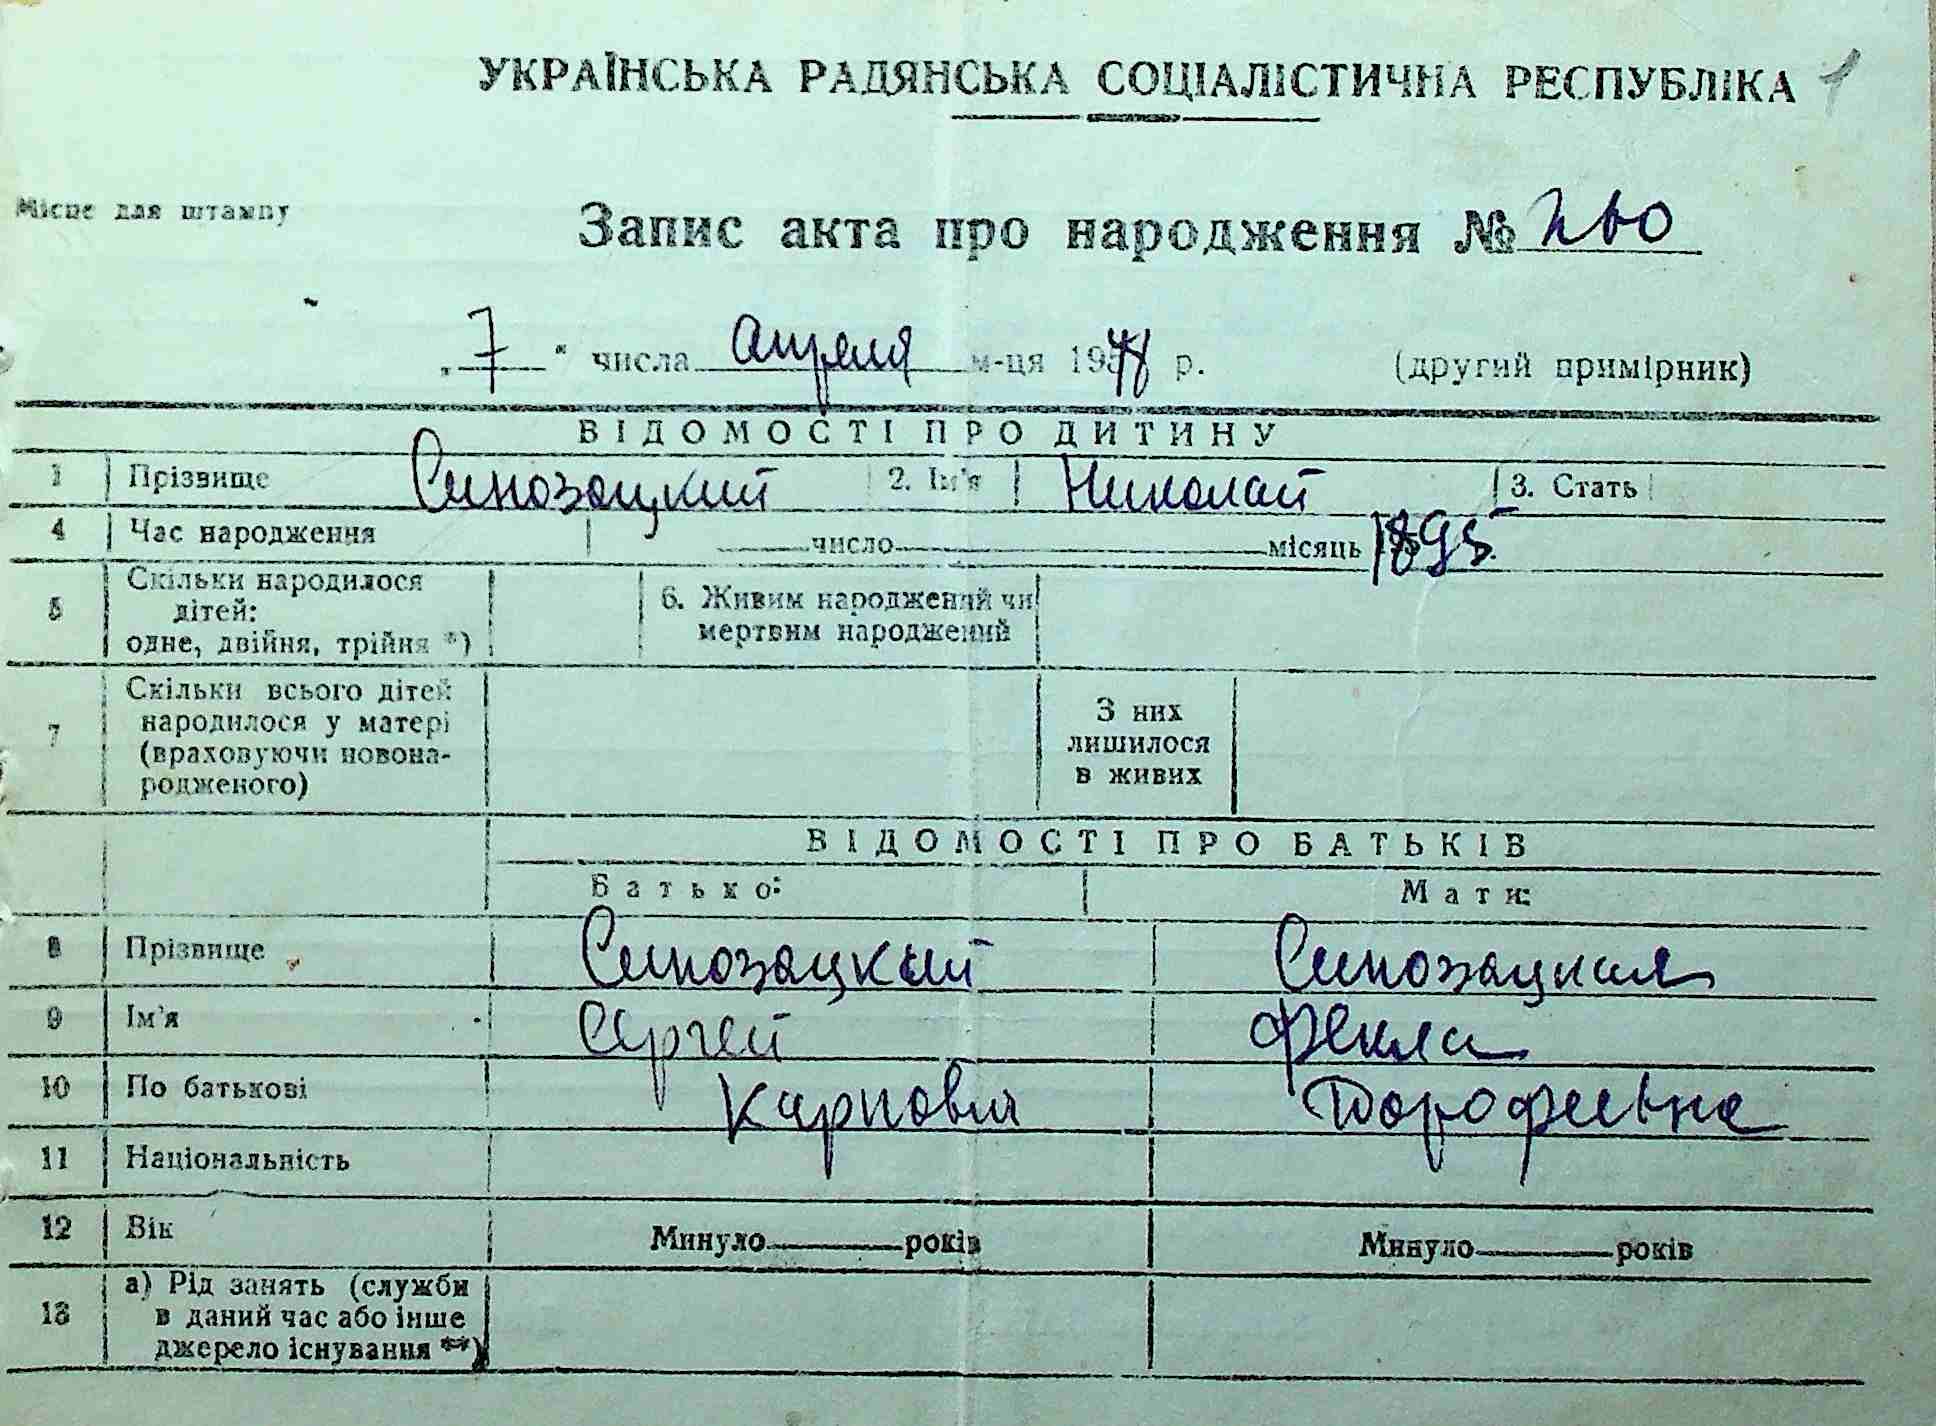 УКРАЇНСЬКА РАДЯНСЬКА СОЦІАЛІСТИЧНА РЕСПУБЛІКА 1
Місце для штампу
Запис акта про народження №
„ 7 " числа апреля м-ця 1948 р. (другий примірник)
ВІДОМОСТІ ПРО ДИТИНУ
1 Прізвище Синозацкий 2. Ім'я Николай 3. Стать
4 Час народження число місяць 1895
5 Скільки народилося
дітей:
одне, двійня, трійня *)
6. Живим народжений чи
мертвим народжений
7 Скільки всього дітей
народилося у матері
(враховуючи новона-
родженого)
З них
лишилося
в живих
ВІДОМОСТІ ПРО БАТЬКІВ
Батько: Мати:
8 Прізвище Синозацкий Синозацкая
9 Ім'я Сергей Фекла
10 По батькові Карпович Дорофеевна
11 Національність
12 Вік Минуло років Минуло років
13 а) Рід занять (служби
в даний час або інше
джерело існування **)